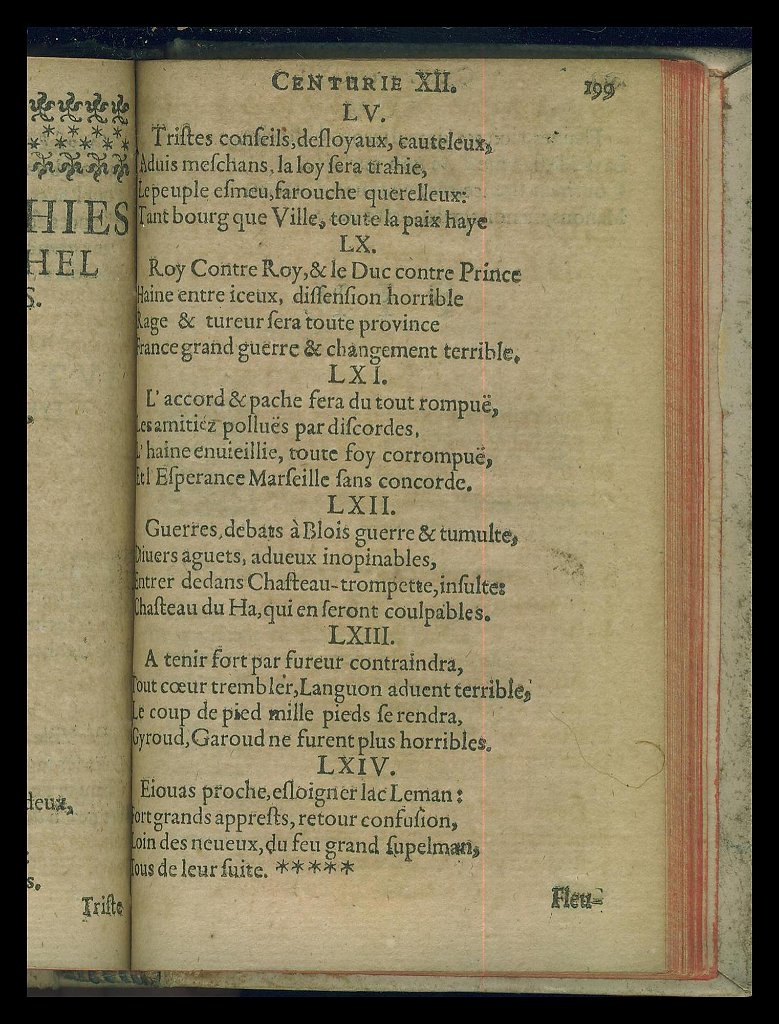 HIES
HEL
S.
deux,
s.
Triſte
CENTURIE XII. 199
LV.
Triſtes conſeils,deſloyaux, cauteleux,
Aduis meſchans, la loy ſera trahie,
Le peuple eſmeu,farouche querelleux:
Tant bourg que Ville, toute la paix haye
LX.
Roy Contre Roy,& le Duc contre Prince
Haine entre iceux, diſſenſion horrible
Rage & tureur ſera toute province
France grand guerre & changement terrible.
LXI.
L' accord & pache ſera du tout rompuë,
Les amitiez polluës par diſcordes,
L' haine enuieillie, toute foy corrompuë,
Et l' Eſperance Marſeille ſans concorde.
LXII.
Guerres,debats à Blois guerre & tumulte,
Diuers aguets, adueux inopinables,
Entrer dedans Chaſteau-trompette,inſulte:
Chaſteau du Ha, qui en ſeront coulpables.
LXIII.
A tenir fort par fureur contraindra,
Tout cœur trembler,Languon aduent terrible,
Le coup de pied mille pieds ſe rendra,
Gyroud,Garoud ne furent plus horribles.
LXIV.
Eiouas proche,eſloigner lac Leman:
Fort grands appreſts, retour confuſion,
Loin des neueux, du feu grand ſupelman,
Tous de leur ſuite. *****
Fleu-